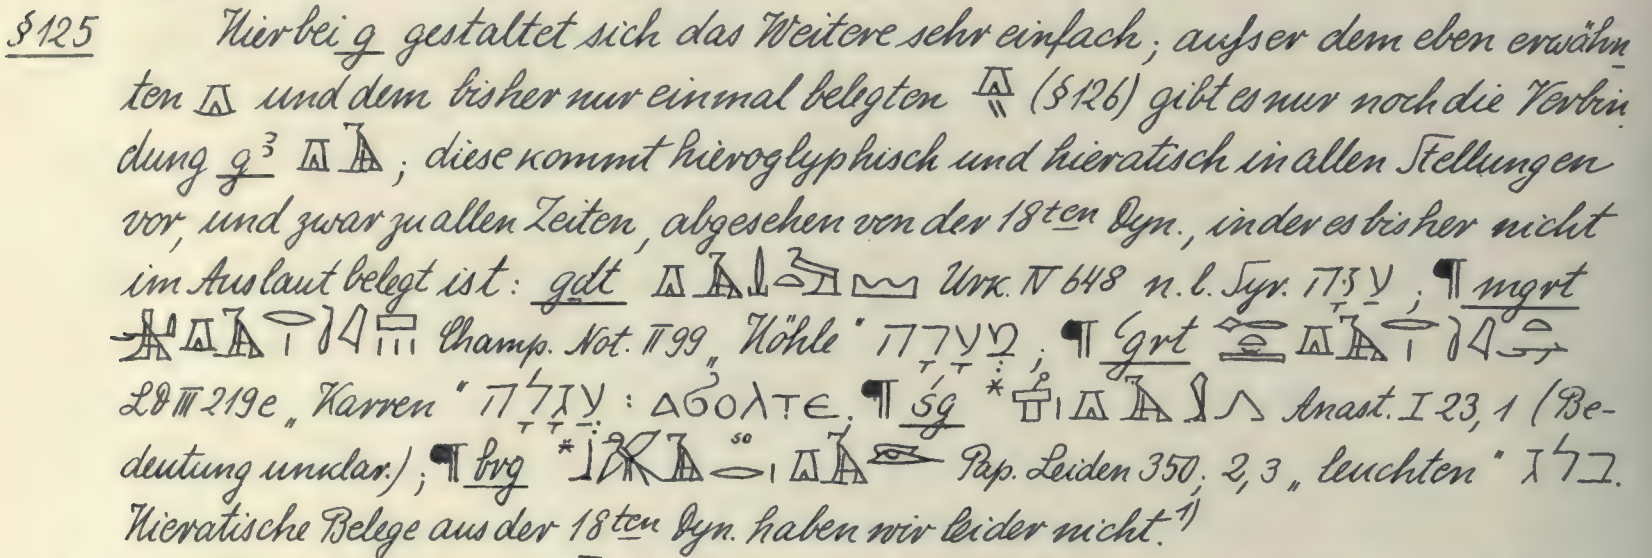 §125 Hierbei g gestaltet sich das Weitere sehr einfach; aufser dem eben erwähn
ten 𓎼 und dem bisher nur einmal belegten 𓎼 (§126) gibt es nur noch die Verbin
dung gꜣ 𓎼𓄿; diese kommt hieroglyphisch und hieratisch in allen Stellungen
vor, und zwar zu allen Zeiten, abgesehen von der 18ten Dyn., in der es bisher nicht
im Auslaut belegt ist: gdt 𓎼𓄿 Urk. IV 648 n. l. Syr. עַזָּה; ¶ mgrt
𓎼𓄿 Champ. Not. II 99 „Höhle“ מְעָרָה; ¶ ꜥgrt 𓎼𓄿
LD III 219e „Karren“ עֲגָלָה : ⲁϭⲟⲗⲧⲉ; ¶ śg * 𓎼𓄿 Anast. I 23, 1 (Be-
deutung unklar.); ¶ brg * so 𓎼𓄿 Pap. Leiden 350; 2,3 „leuchten“ בלג.
Hieratische Belege aus der 18ten Dyn. haben wir leider nicht.¹⁾